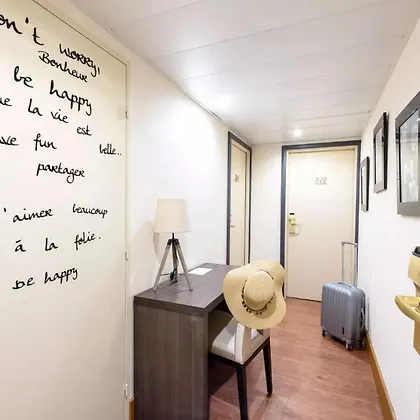 on't worry,
Bonheur
be happy
ue la vie est
belle..
ave fun
partager
'aimer beaucoup
à la folie..
Be happy